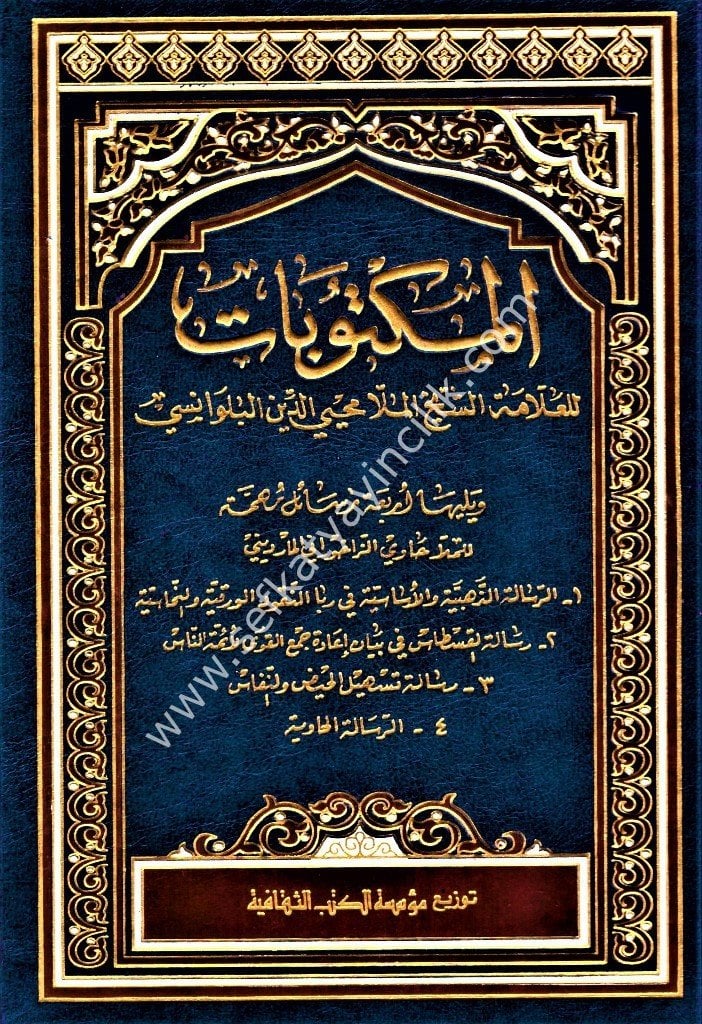 المكتوبات
للعلامة الشيخ الملا محيي الدين البلوانسي
ويليها أربعة رسائل مهمة
للملا حاوي المارديني
١- الرسالة الذهبية والأساسية في ربا النقود الورقية والنحاسية
٢- رسالة القسطاس في بيان إعادة جمع القرى لأئمة الناس
٣- رسالة تسهيل الحيض والنفاس
٤- الرسالة الحاوية
توزيع مؤسسة الكتب الثقافية
www.sefkatyayincilik.com